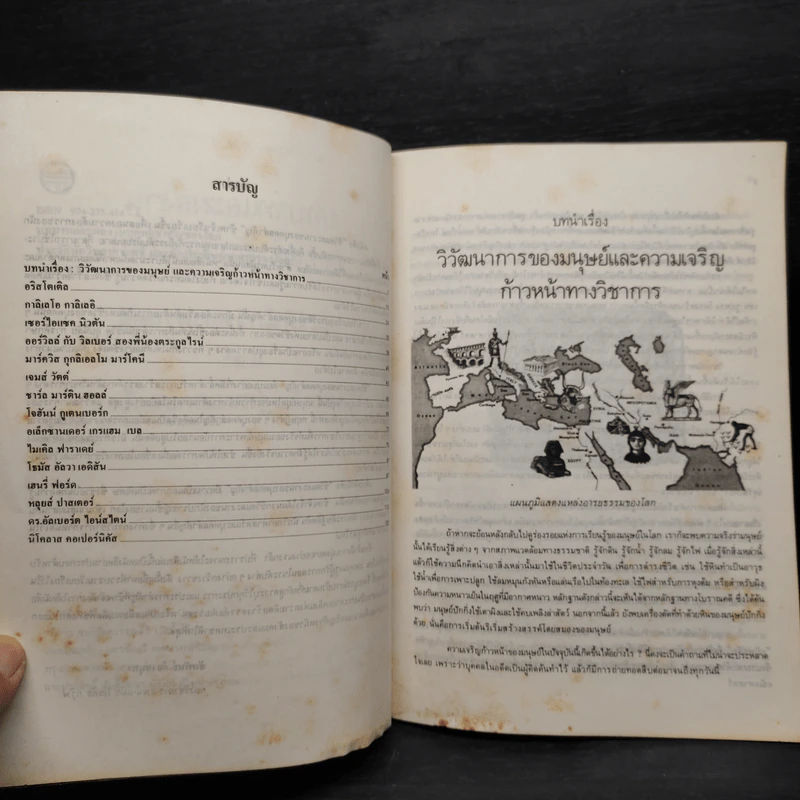 สารบัญ
บทนำเรื่อง : วิวัฒนาการของมนุษย์ และความเจริญก้าวหน้าทางวิชาการ
อริสโตเติล
กาลิเลโอ กาลิเลอิ
เซอร์ไอแซค นิวตัน
ออร์วิลล์ กับ วิลเบอร์ สองพี่น้องตระกูลไรน์
มาร์ควิส กูกลิเอลโม มาร์โคนี
เจมส์ วัตต์
ชาร์ล มาร์ติน ฮอลล์
โจฮันน์ กูเตนเบอร์ก
อเล็กซานเดอร์ เกรแฮม เบล
ไมเคิล ฟาราเดย์
โธมัส อัลวา เอดิสัน
เฮนรี่ ฟอร์ด
หลุยส์ ปาสเตอร์
ดร.อัลเบอร์ต ไอน์สไตน์
นิโคลาส คอเปอร์นิคัส
บทนำเรื่อง
วิวัฒนาการของมนุษย์และความเจริญ
ก้าวหน้าทางวิชาการ
แผนภูมิแสดงแหล่งอารยธรรมของโลก
ถ้าหากจะย้อนหลังกลับไปดูร่องรอยแห่งการเรียนรู้ของมนุษย์ในโลก เราก็จะพบความจริงว่ามนุษย์
นั้นได้เรียนรู้สิ่งต่าง ๆ จากสภาพแวดล้อมทางธรรมชาติ รู้จักดิน รู้จักน้ำ รู้จักลม รู้จักไฟ เมื่อรู้จักสิ่งเหล่านี้
แล้วก็ใช้ความนึกคิดนำเอาสิ่งเหล่านั้นมาใช้ในชีวิตประจำวัน เพื่อการดำรงชีวิต เช่น ใช้หินทำเป็นอาวุธ
ใช้น้ำเพื่อการเพาะปลูก ใช้ลมหมุนกังหันหรือแล่นเรือไปในท้องทะเล ใช้ไฟสำหรับการหุงต้ม หรือสำหรับผิง
ป้องกันความหนาวเย็นในฤดูที่มีอากาศหนาว หลักฐานดังกล่าวนี้จะเห็นได้จากหลักฐานทางโบราณคดี ซึ่งได้ค้น
พบว่า มนุษย์ปักกิ่งใช้เตาผิงและใช้คบเพลิงล่าสัตว์ นอกจากนี้แล้ว ยังพบเครื่องตัดที่ทำด้วยหินของมนุษย์ปักกิ่ง
ด้วย นั่นคือการเริ่มต้นริเริ่มสร้างสรรค์โดยสมองของมนุษย์
ความเจริญก้าวหน้าของมนุษย์ในปัจจุบันนี้เกิดขึ้นได้อย่างไร ? นี่คงจะเป็นคำถามที่ไม่น่าจะประหลาด
ใจเลย เพราะว่าบุคคลในอดีตเป็นผู้คิดค้นทำไว้ แล้วก็มีการถ่ายทอดสืบต่อมาจนถึงทุกวันนี้